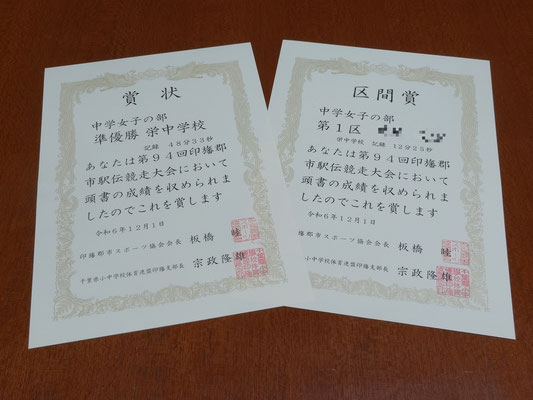 賞状
中学女子の部
準優勝 栄中学校
記録 48分33秒
あなたは第94回印旛郡
市駅伝競走大会において
頭書の成績を収められま
したのでこれを賞します
令和6年12月1日
印旛郡市スポーツ協会会長 板橋 睦
千葉県小中学校体育連盟印旛支部長 宗政隆雄
区間賞
中学女子の部
第1区
栄中学校 記録 12分25秒
あなたは第94回印旛郡
市駅伝競走大会において
頭書の成績を収められま
したのでこれを賞します
令和6年12月1日
旛郡市スポーツ協会会長 板橋 睦
小中学校体育連盟印旛支部長 宗政隆雄